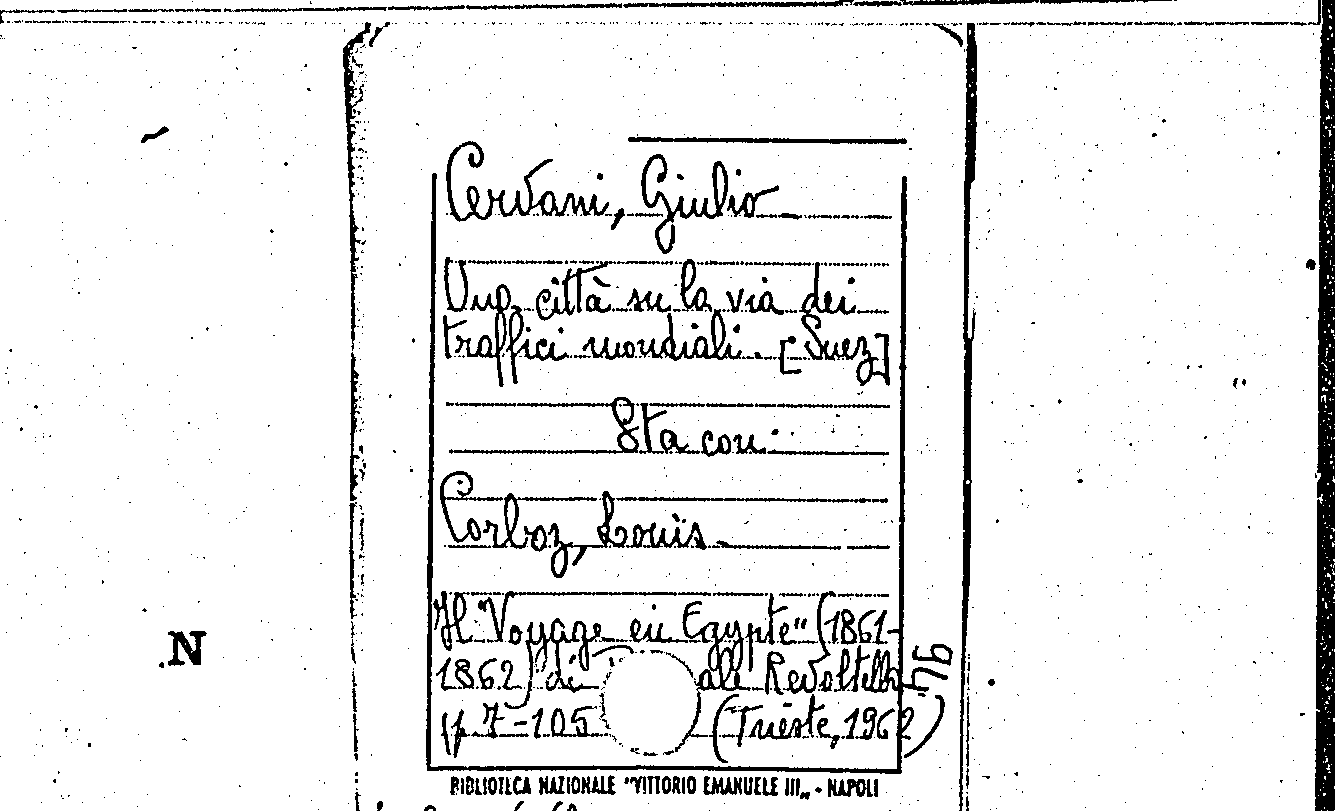 Cervani, Giulio
Una città su la via dei
traffici mondiali. [Suez]
Sta con:
Corboz, Louis
Il "Voyage en Egypte" (1861-
1862) di ale Revoltella
p. 7-105 (Trieste, 1962)
94
N
BIBLIOTECA NAZIONALE "VITTORIO EMANUELE III„ - NAPOLI